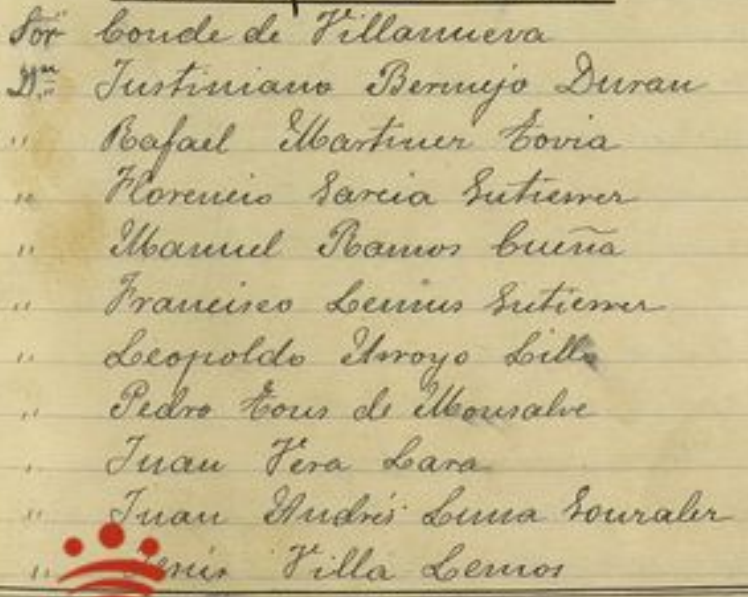 Sor Conde de Villanueva
Dn. Justiniano Bermejo Duran
" Rafael Martinez Tovia
" Florencio Garcia Gutierrez
" Manuel Ramos Cueña
" Francisco Lemus Gutierrez
" Leopoldo Arroyo Lillo
" Pedro Tous de Monsalve
" Juan Vera Lara
" Juan Andrés Luna Gonzalez
" Villa Lemos